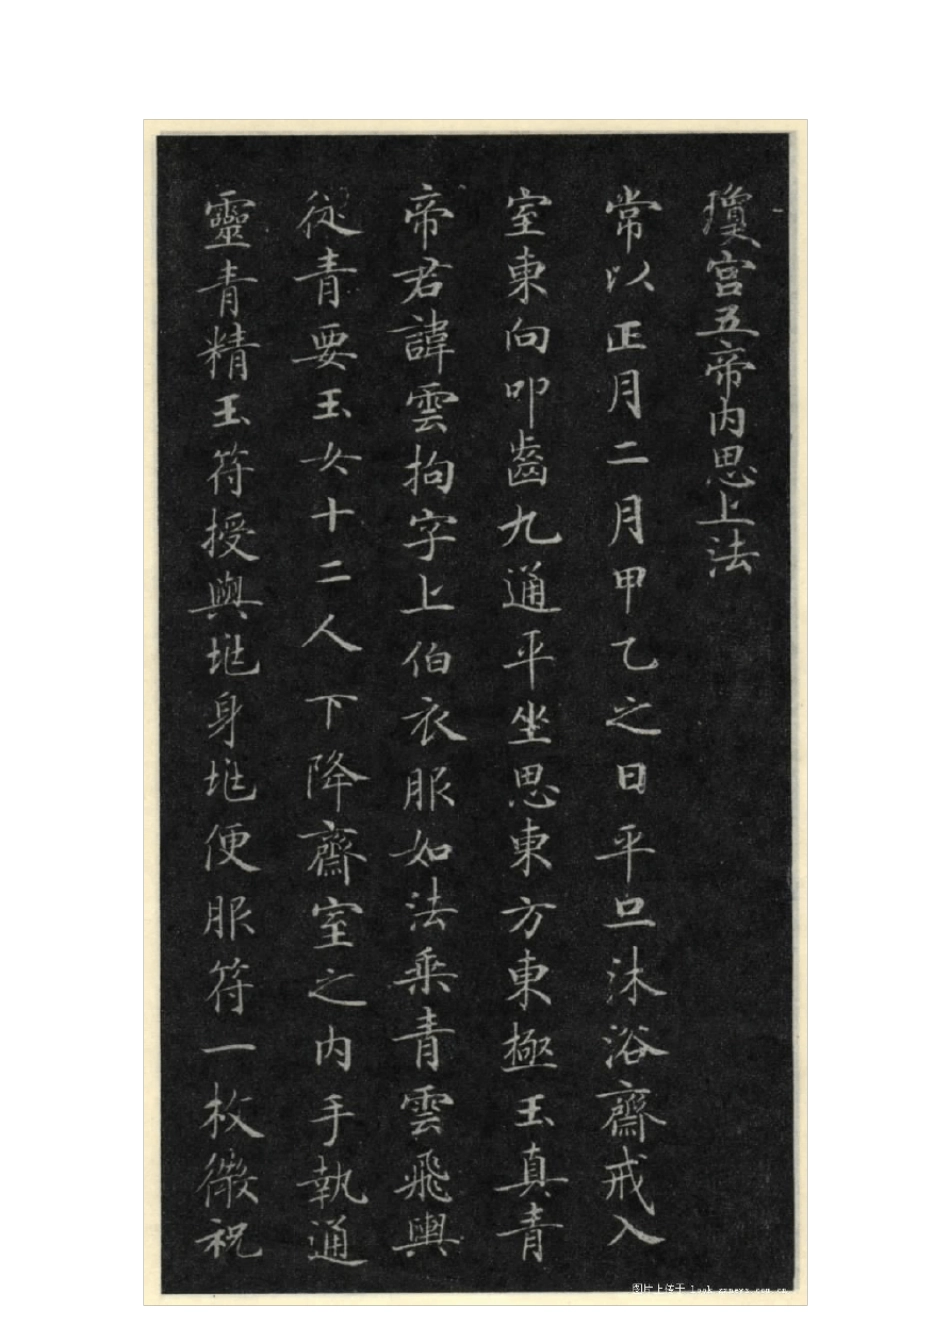 瓊宮五帝內思上法
常以正月二月甲乙之日平旦沐浴齋戒入
室東向叩齒九通平坐思東方東極玉真青
帝君諱雲拘字上伯衣服如法乘青雲飛輿
從青要玉女十二人下降齋室之內手執通
靈青精玉符授與兆身兆便服符一枚微祝
图片上传于